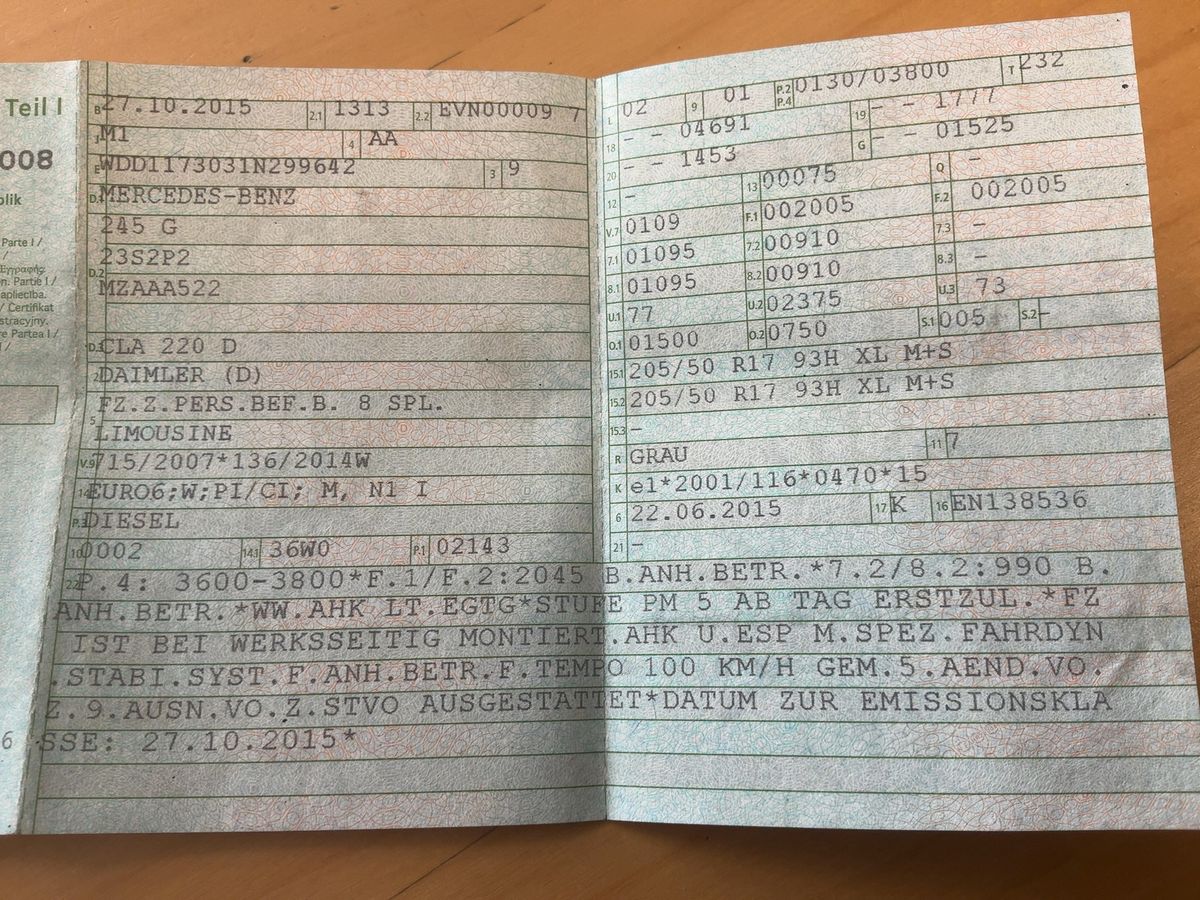 Teil I
008
blik
Parte I /
Εγγραφής.
n. Partie I /
apliecība.
/ Certifikat
stracyjny.
re Partea I /
6
B 27.10.2015 2.1 1313 2.2 EVN00009 7
J M1 4 AA
E WDD1173031N299642 3 9
D.1 MERCEDES-BENZ
245 G
23S2P2
D.2 MZAAA522
D.3 CLA 220 D
2 DAIMLER (D)
FZ.Z.PERS.BEF.B. 8 SPL.
5 LIMOUSINE
V.9 715/2007*136/2014W
14 EURO6;W;PI/CI; M, N1 I
P.3 DIESEL
10 0002 14.1 36W0 P.1 02143
L 02 9 01 P.2 P.4 0130/03800 T 232
18 - - 04691 19 - - 1777
20 - - 1453 G - - 01525
12 - 13 00075 Q -
V.7 0109 F.1 002005 F.2 002005
7.1 01095 7.2 00910 7.3 -
8.1 01095 8.2 00910 8.3 -
U.1 77 U.2 02375 U.3 73
O.1 01500 O.2 0750 S.1 005 S.2 -
15.1 205/50 R17 93H XL M+S
15.2 205/50 R17 93H XL M+S
15.3 -
R GRAU 11 7
K e1*2001/116*0470*15
6 22.06.2015 17 K 16 EN138536
21 -
22 P.4: 3600-3800*F.1/F.2:2045 B.ANH.BETR.*7.2/8.2:990 B.
ANH.BETR.*WW.AHK LT.EGTG*STUFE PM 5 AB TAG ERSTZUL.*FZ
IST BEI WERKSSEITIG MONTIERT.AHK U.ESP M.SPEZ.FAHRDYN
.STABI.SYST.F.ANH.BETR.F.TEMPO 100 KM/H GEM.5.AEND.VO.
Z.9.AUSN.VO.Z.STVO AUSGESTATTET*DATUM ZUR EMISSIONSKLA
SSE: 27.10.2015*